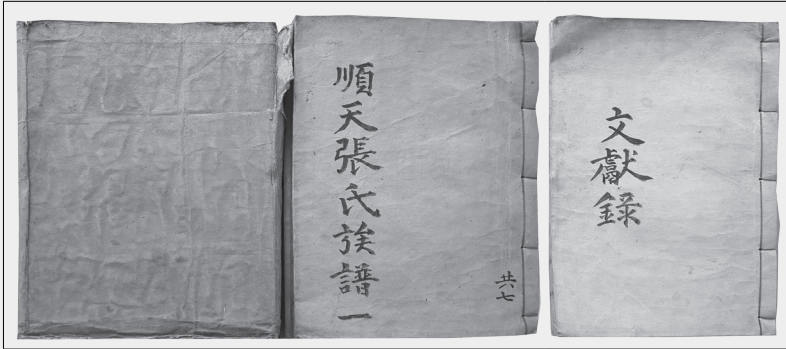 順天張氏族譜一
共七
文獻錄